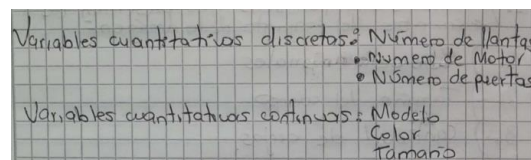 Variables cuantitativas discretas: Número de llantas
• Numero de Motor
• Número de puertas
Variables cuantitativas continuas: Modelo
Color
Tamaño